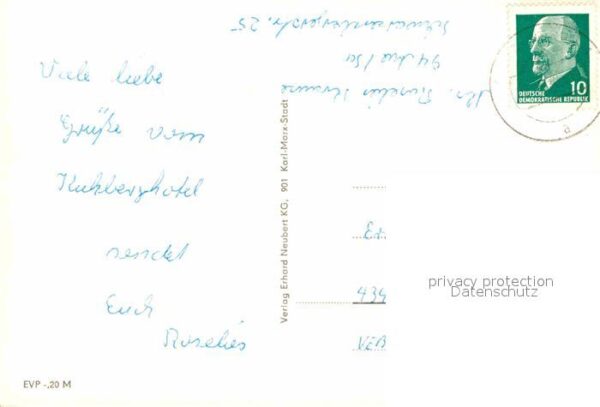 Viele liebe
Grüße vom
Kuhberghotel
sendet
Euch
Roselies
EVP -,20 M
Verlag Erhard Neubert KG, 901 Karl-Marx-Stadt
Schwarzenbergerstr. 25
94 Aue/Sa
DEUTSCHE
DEMOKRATISCHE REPUBLIK
10
a
434
VEB
privacy protection
Datenschutz